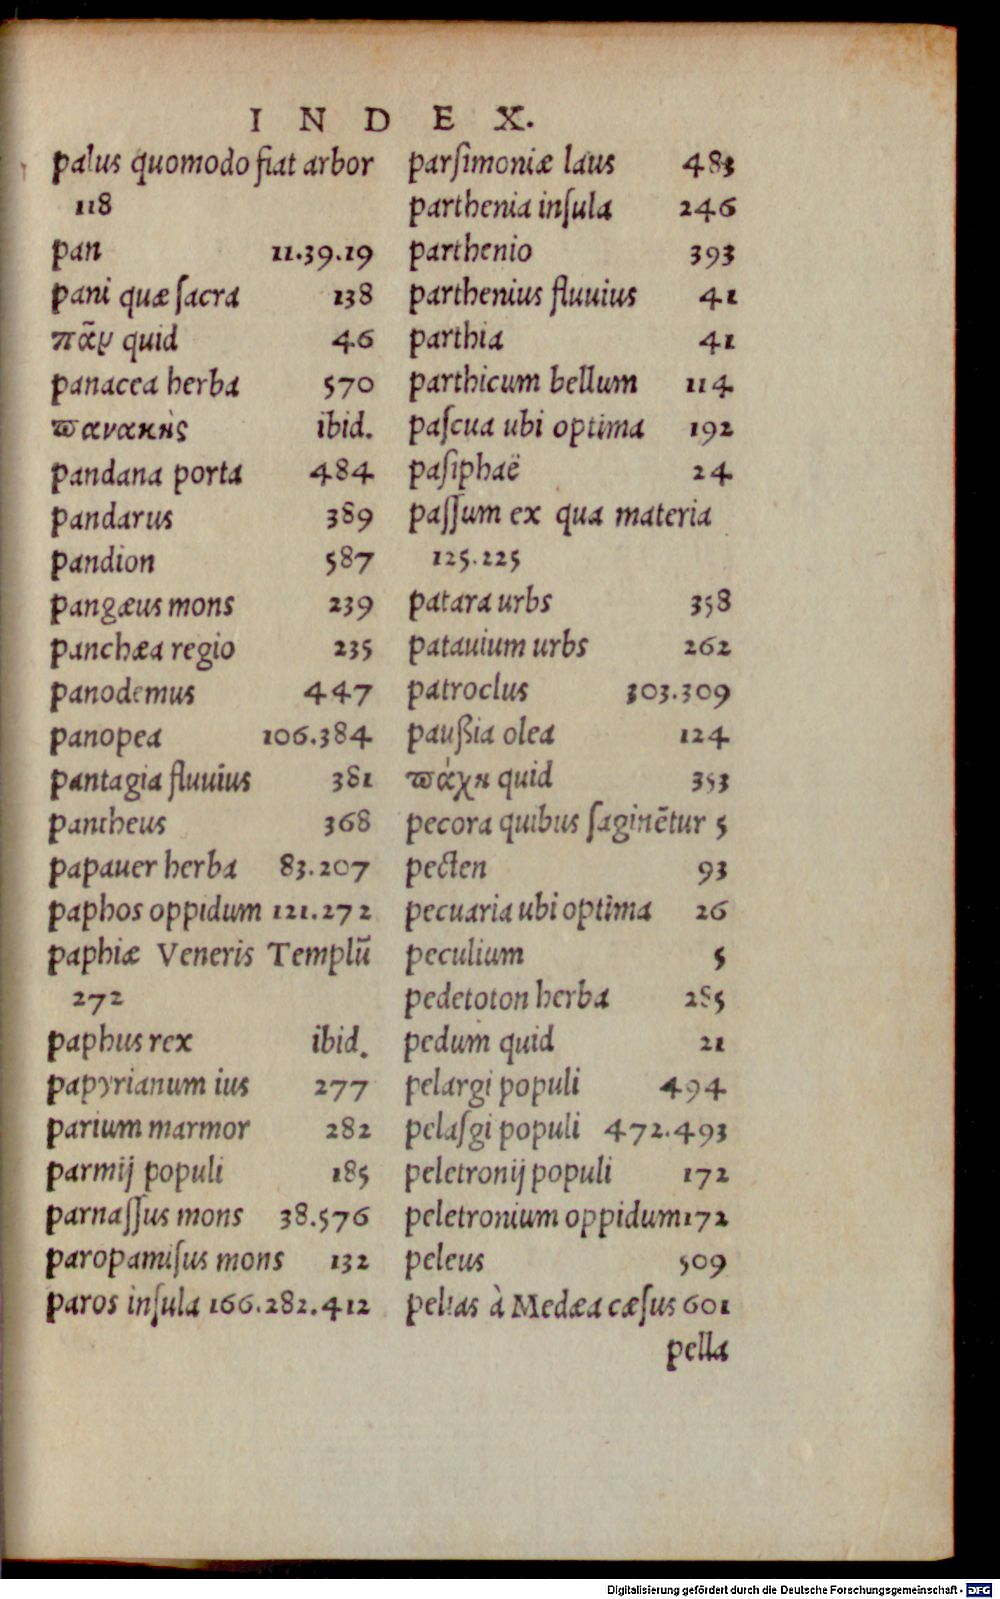 INDEX.
palus quomodo fiat arbor
118
pan 11.39.19
pani quæ ſacra 138
πᾶν quid 46
panacea herba 570
ϖανακὴς ibid.
pandana porta 484
pandarus 389
pandion 587
pangæus mons 239
panchæa regio 235
panodemus 447
panopea 106.384
pantagia fluuius 381
pantheus 368
papauer herba 83.207
paphos oppidum 121.272
paphiæ Veneris Templū
272
paphus rex ibid.
papyrianum ius 277
parium marmor 282
parmij populi 185
parnaſſus mons 38.576
paropamiſus mons 132
paros inſula 166.282.412
parſimoniæ laus 483
parthenia inſula 246
parthenio 393
parthenius fluuius 41
parthia 41
parthicum bellum 114
paſcua ubi optima 192
paſiphaë 24
paſſum ex qua materia
125.225
patara urbs 358
patauium urbs 262
patroclus 303.309
paußia olea 124
ϖάχη quid 353
pecora quibus ſaginētur 5
pecten 93
pecuaria ubi optima 26
peculium 5
pedetoton herba 285
pedum quid 21
pelargi populi 494
pelaſgi populi 472.493
peletronij populi 172
peletronium oppidum 172
peleus 509
pelias à Medæa cæſus 601
pella
Digitalisierung gefördert durch die Deutsche Forschungsgemeinschaft - DFG